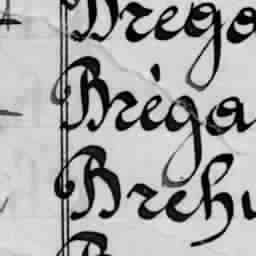 Brego
Bréga
Brehu